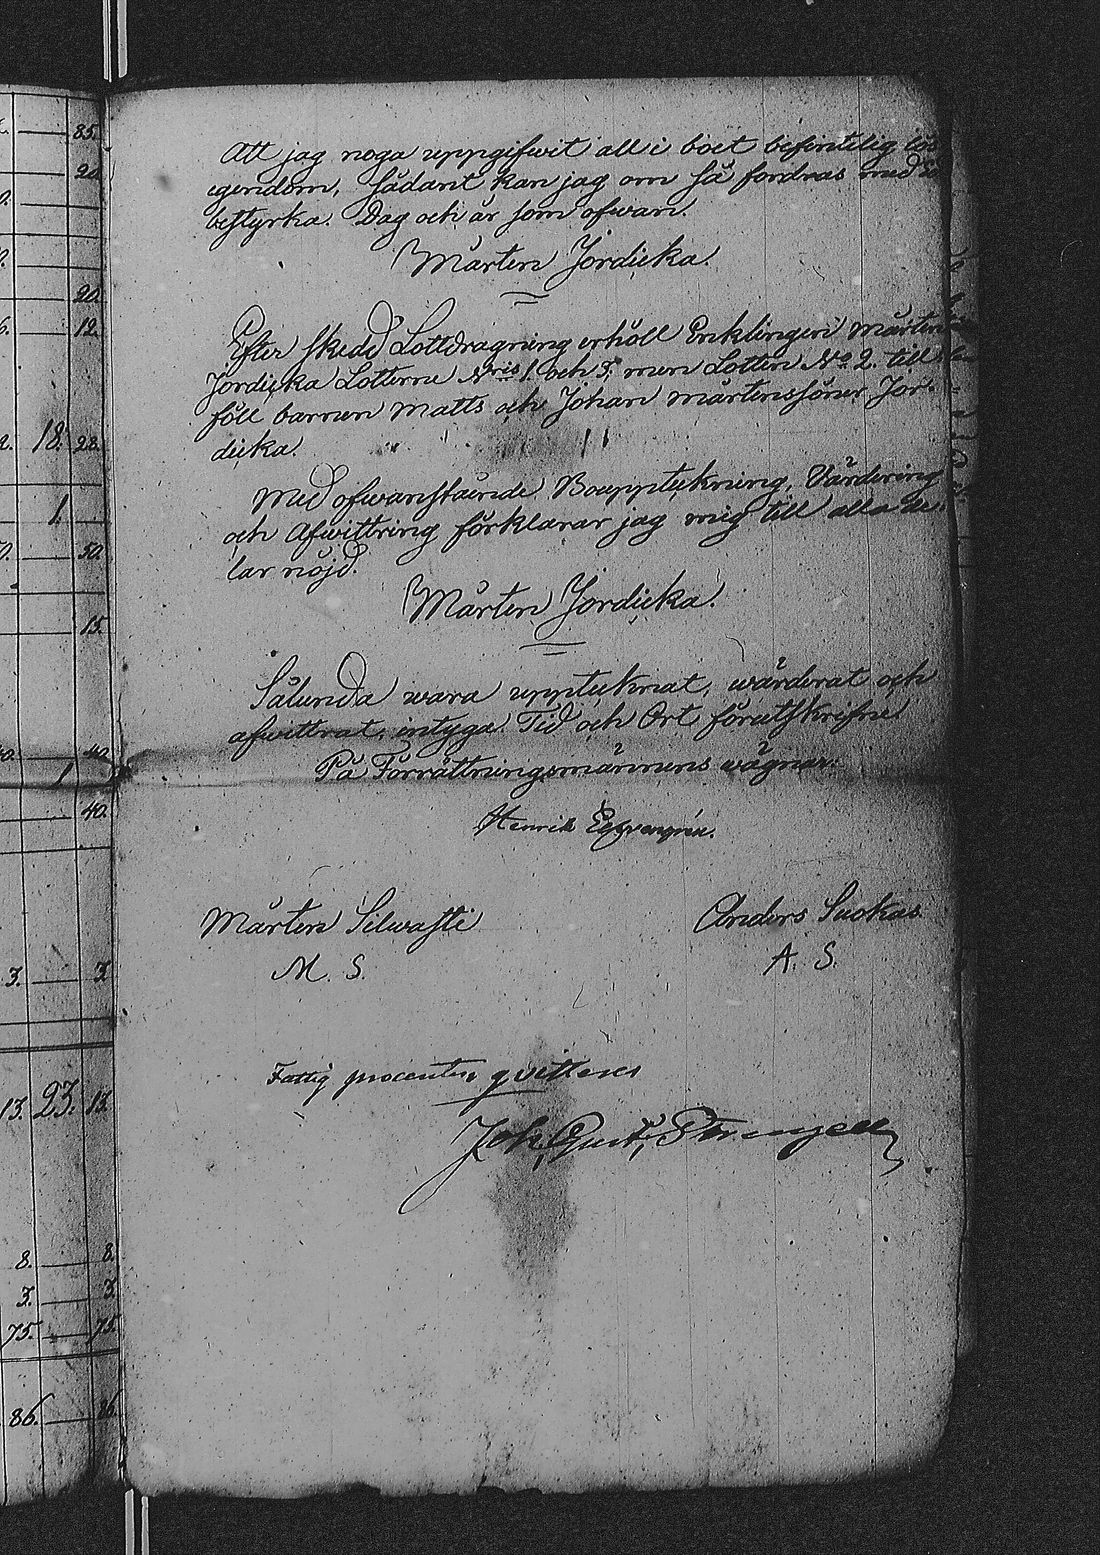 Att jag noga uppgifwit all i boet befintelig lös
egendom, sådant kan jag om så fordras med Ed
bestyrka. Dag och år som ofwan.
Mårten Jördicka.
Efter skedd Lottdragning erhöll Enklingen Mårten
Jördicka Lotterne Nris 1. och 3. men Lotten No 2. till
föll barnen Matts och Johan Mårtenssöner Jör-
dicka.
Med ofwanstående Bouppteckning, Värdering
och Afwittring förklarar jag mig till alla de-
lar nöjd.
Mårten Jördicka.
Sålunda wara uppteknat, wärderat och
afwittrat, intyga. Tid och Ort förutskrifne
På Förrättningsmännens wägnar:
Henrik
Mårten Silwasti
Anders Suokas
M. S.
A. S.
Fattig procenten qvitteras
Joh. Gust.
85.
20.
20.
12.
18. 28.
1.
50.
15.
40.
1
40.
3. 3.
13. 23. 13.
8. 8.
3. 3.
75. 75.
86. 86.